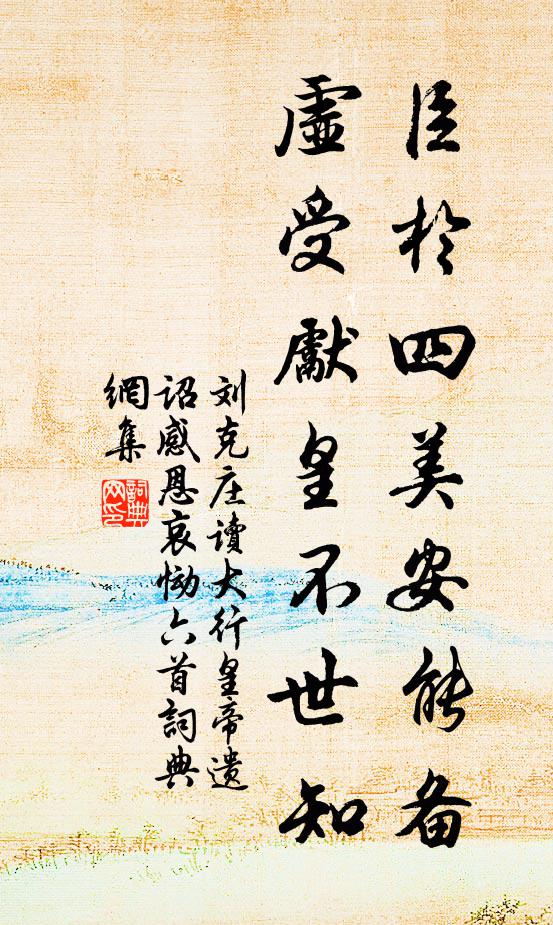 臣於四美安能备
虚受獻皇不世知
刘克庄讀大行皇帝遗
诏感恩哀恸六首詞典
網集
詞典
网印